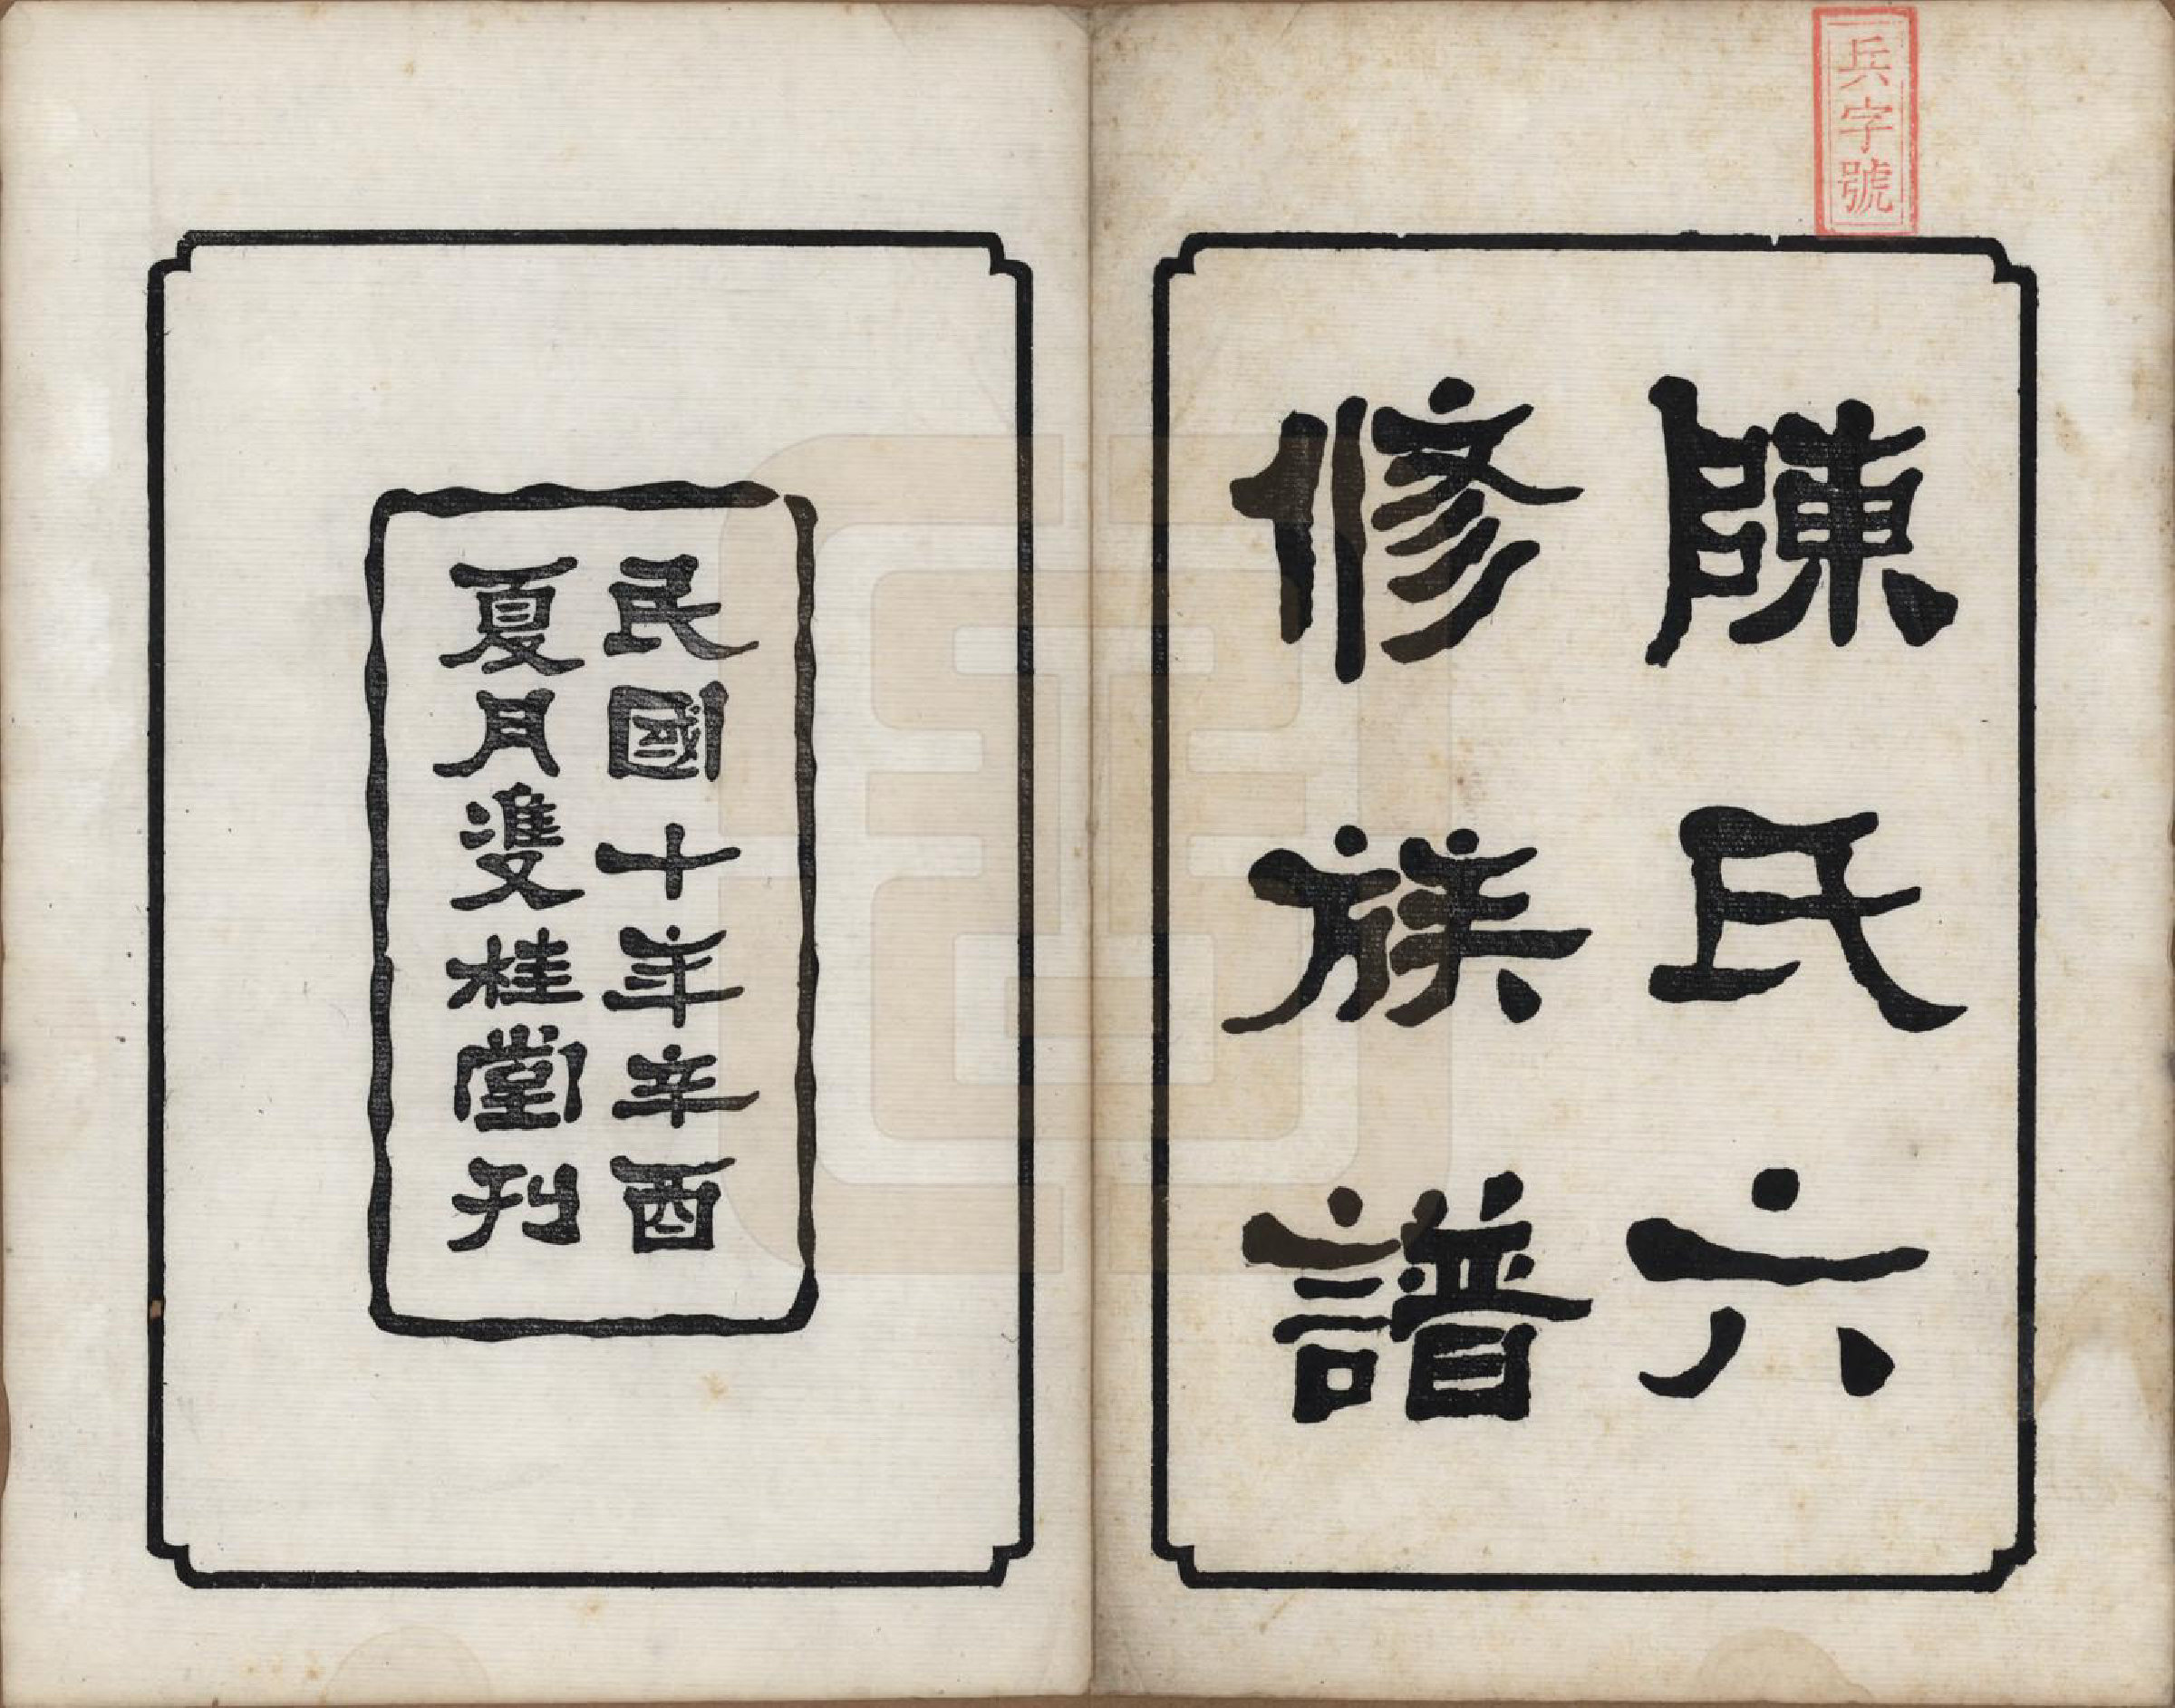 兵字號
陳氏六
修族譜
民國十年辛酉
夏月雙桂堂刊